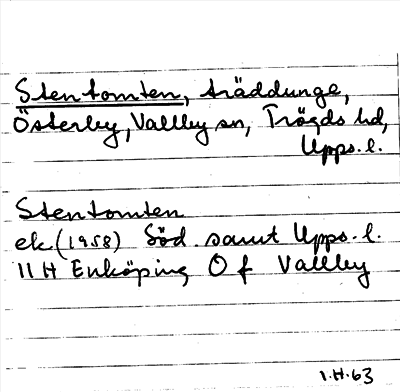 Stentomten, träddunge,
Österby, Vallby sn, Trögds hd,
Upps. l.
Stentomten
ek (1958) Söd. samt Upps. l.
11 H Enköping O f Vallby
1.H.63